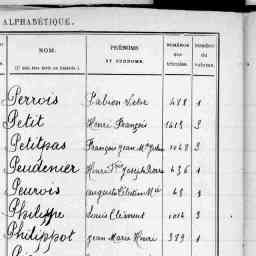 ALPHABÉTIQUE.
NOM.
PRÉNOMS
ET SURNOMS.
NUMÉROS
des
NUMÉRO
du
volume.
Perrois Fabien 488 1
Petit Henri François 1413 3
Petitpas François Jean 1048 3
Peudenier Henri Joseph 436 1
Peurois auguste Célestin 48 3
Philippe Louis Clément 1014 3
Philippot Jean Marie Henri 389 1